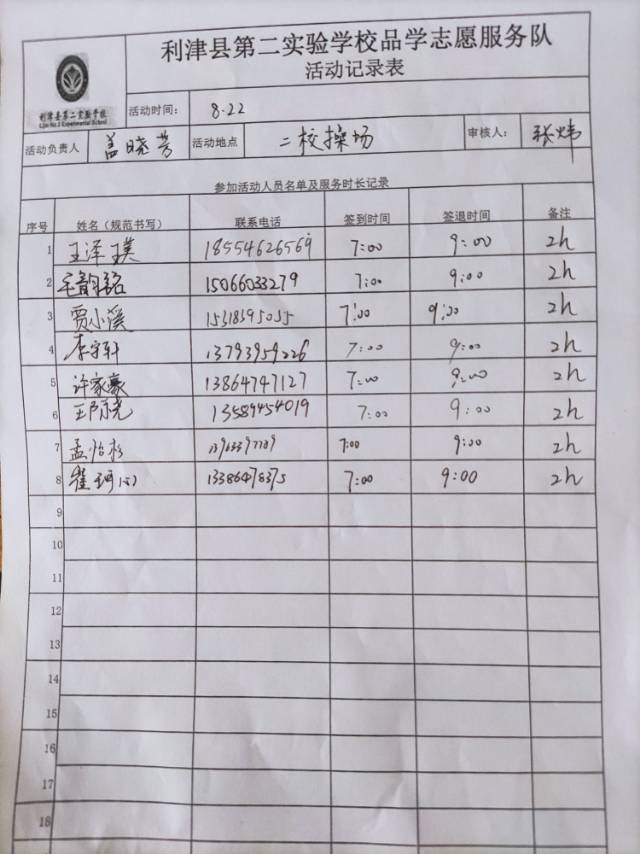 利津县第二实验学校品学志愿服务队
活动记录表
利津县第二实验学校
Lijin No.2 Experimental School
活动时间： 8.22
活动负责人 盖晓芳 活动地点 二校操场 审核人： 张炜
参加活动人员名单及服务时长记录
序号 姓名（规范书写） 联系电话 签到时间 签退时间 备注
1 王泽璞 18554626569 7:00 9:00 2h
2 毛韵铭 15066033279 7:00 9:00 2h
3 贾小溪 15318395035 7:00 9:00 2h
4 李宇轩 13793959226 7:00 9:00 2h
5 许家豪 13864747127 7:00 9:00 2h
6 王陈尧 13589454019 7:00 9:00 2h
7 孟怡杉 7:00 9:00 2h
8 翟珂(5) 13386478375 7:00 9:00 2h
9
10
11
12
13
14
15
16
17
18